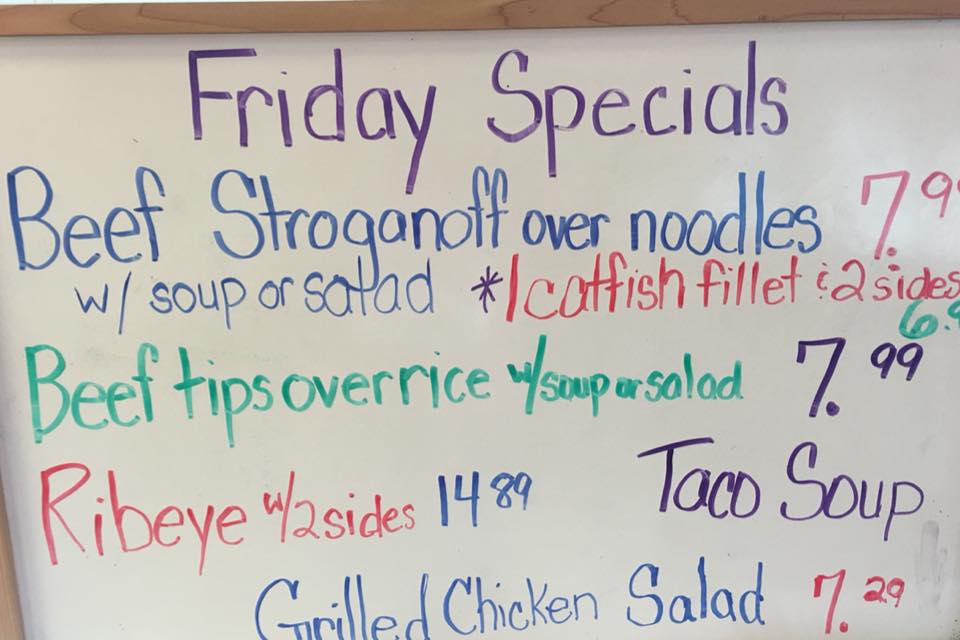 Friday Specials
Beef Stroganoff over noodles 7.9
w/ soup or salad *1 catfish fillet & 2 sides
6.9
Beef tips over rice w/ soup or salad 7.99
Ribeye w/ 2 sides 14 89 Taco Soup
Grilled Chicken Salad 7.29